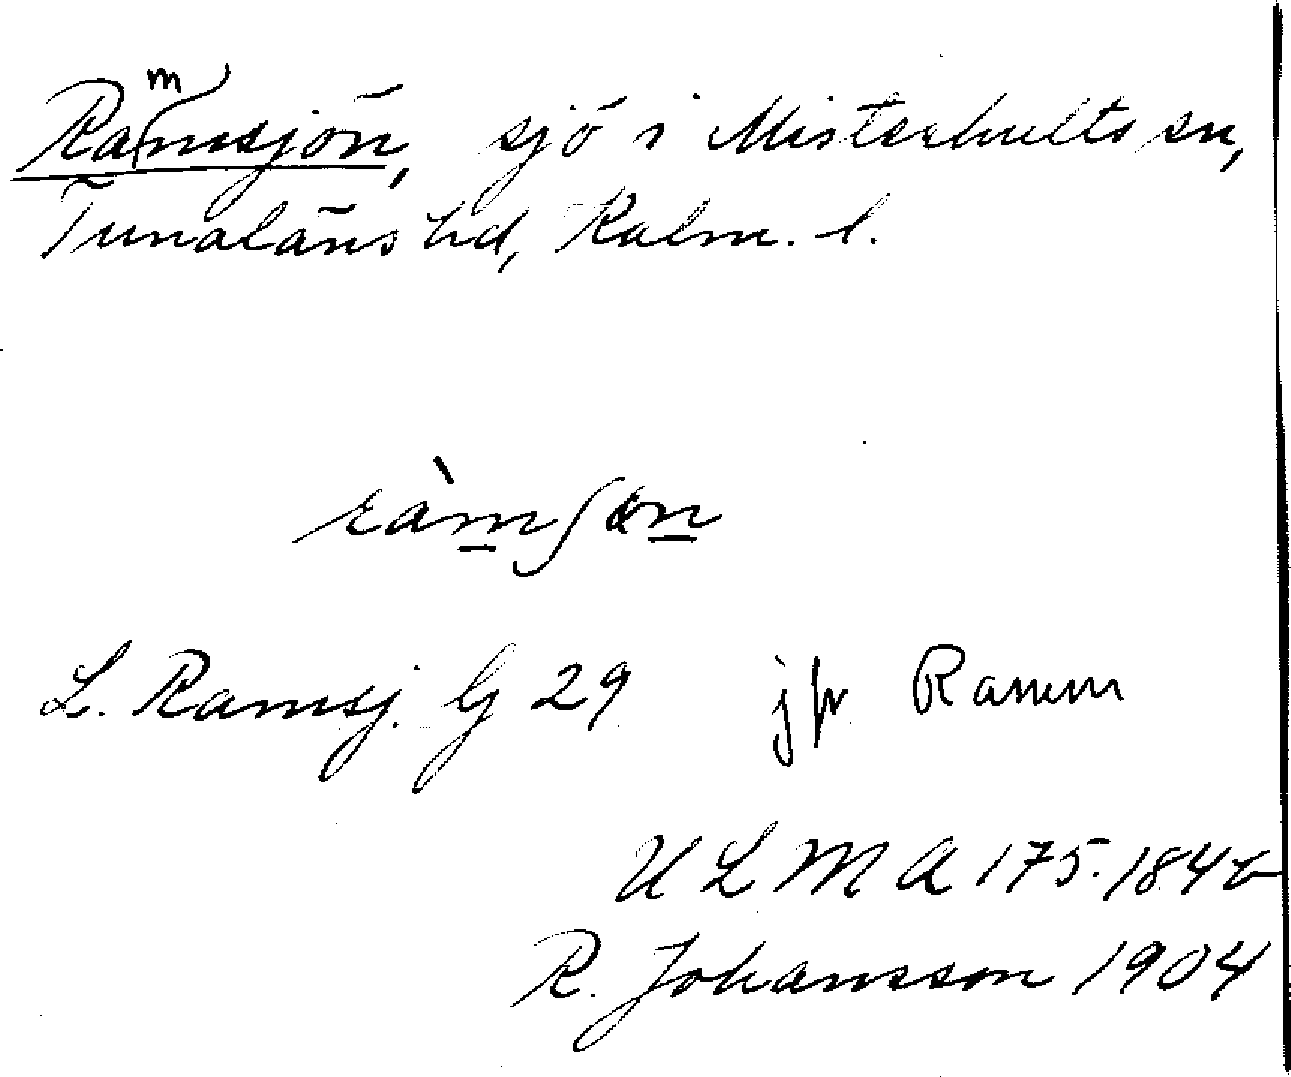 Rammsjön, sjö i Misterhults sn,
Tunaläns hd, Kalm. l.
ràmʃøn
L. Ramsj. G 29 jfr Ramm
ULMA 175:184b
R. Johansson 1904